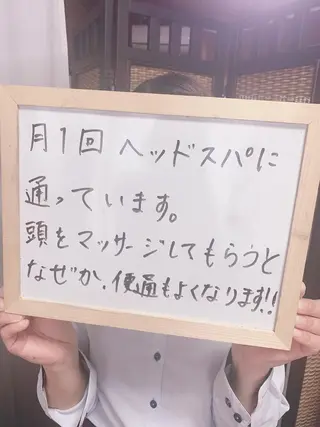 月1回 ヘッドスパに
通っています。
頭をマッサージしてもらうと
なぜか、便通もよくなります!!